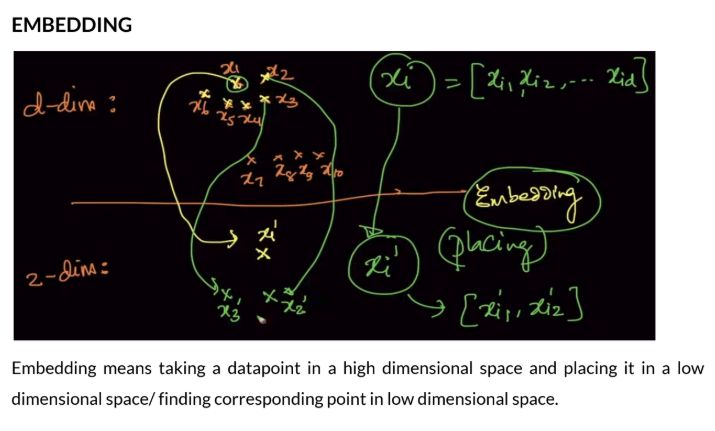 EMBEDDING
x₁ x₂
xi = [xi₁, xi₂, --- xid]
d-dim :
x₆ x₅ x₄ x₃
x₇ x₈ x₉ x₁₀
Embedding
(placing)
x₁'
2-dim :
xi'
x₃' x₂'
[xi₁', xi₂']
Embedding means taking a datapoint in a high dimensional space and placing it in a low
dimensional space/ finding corresponding point in low dimensional space.